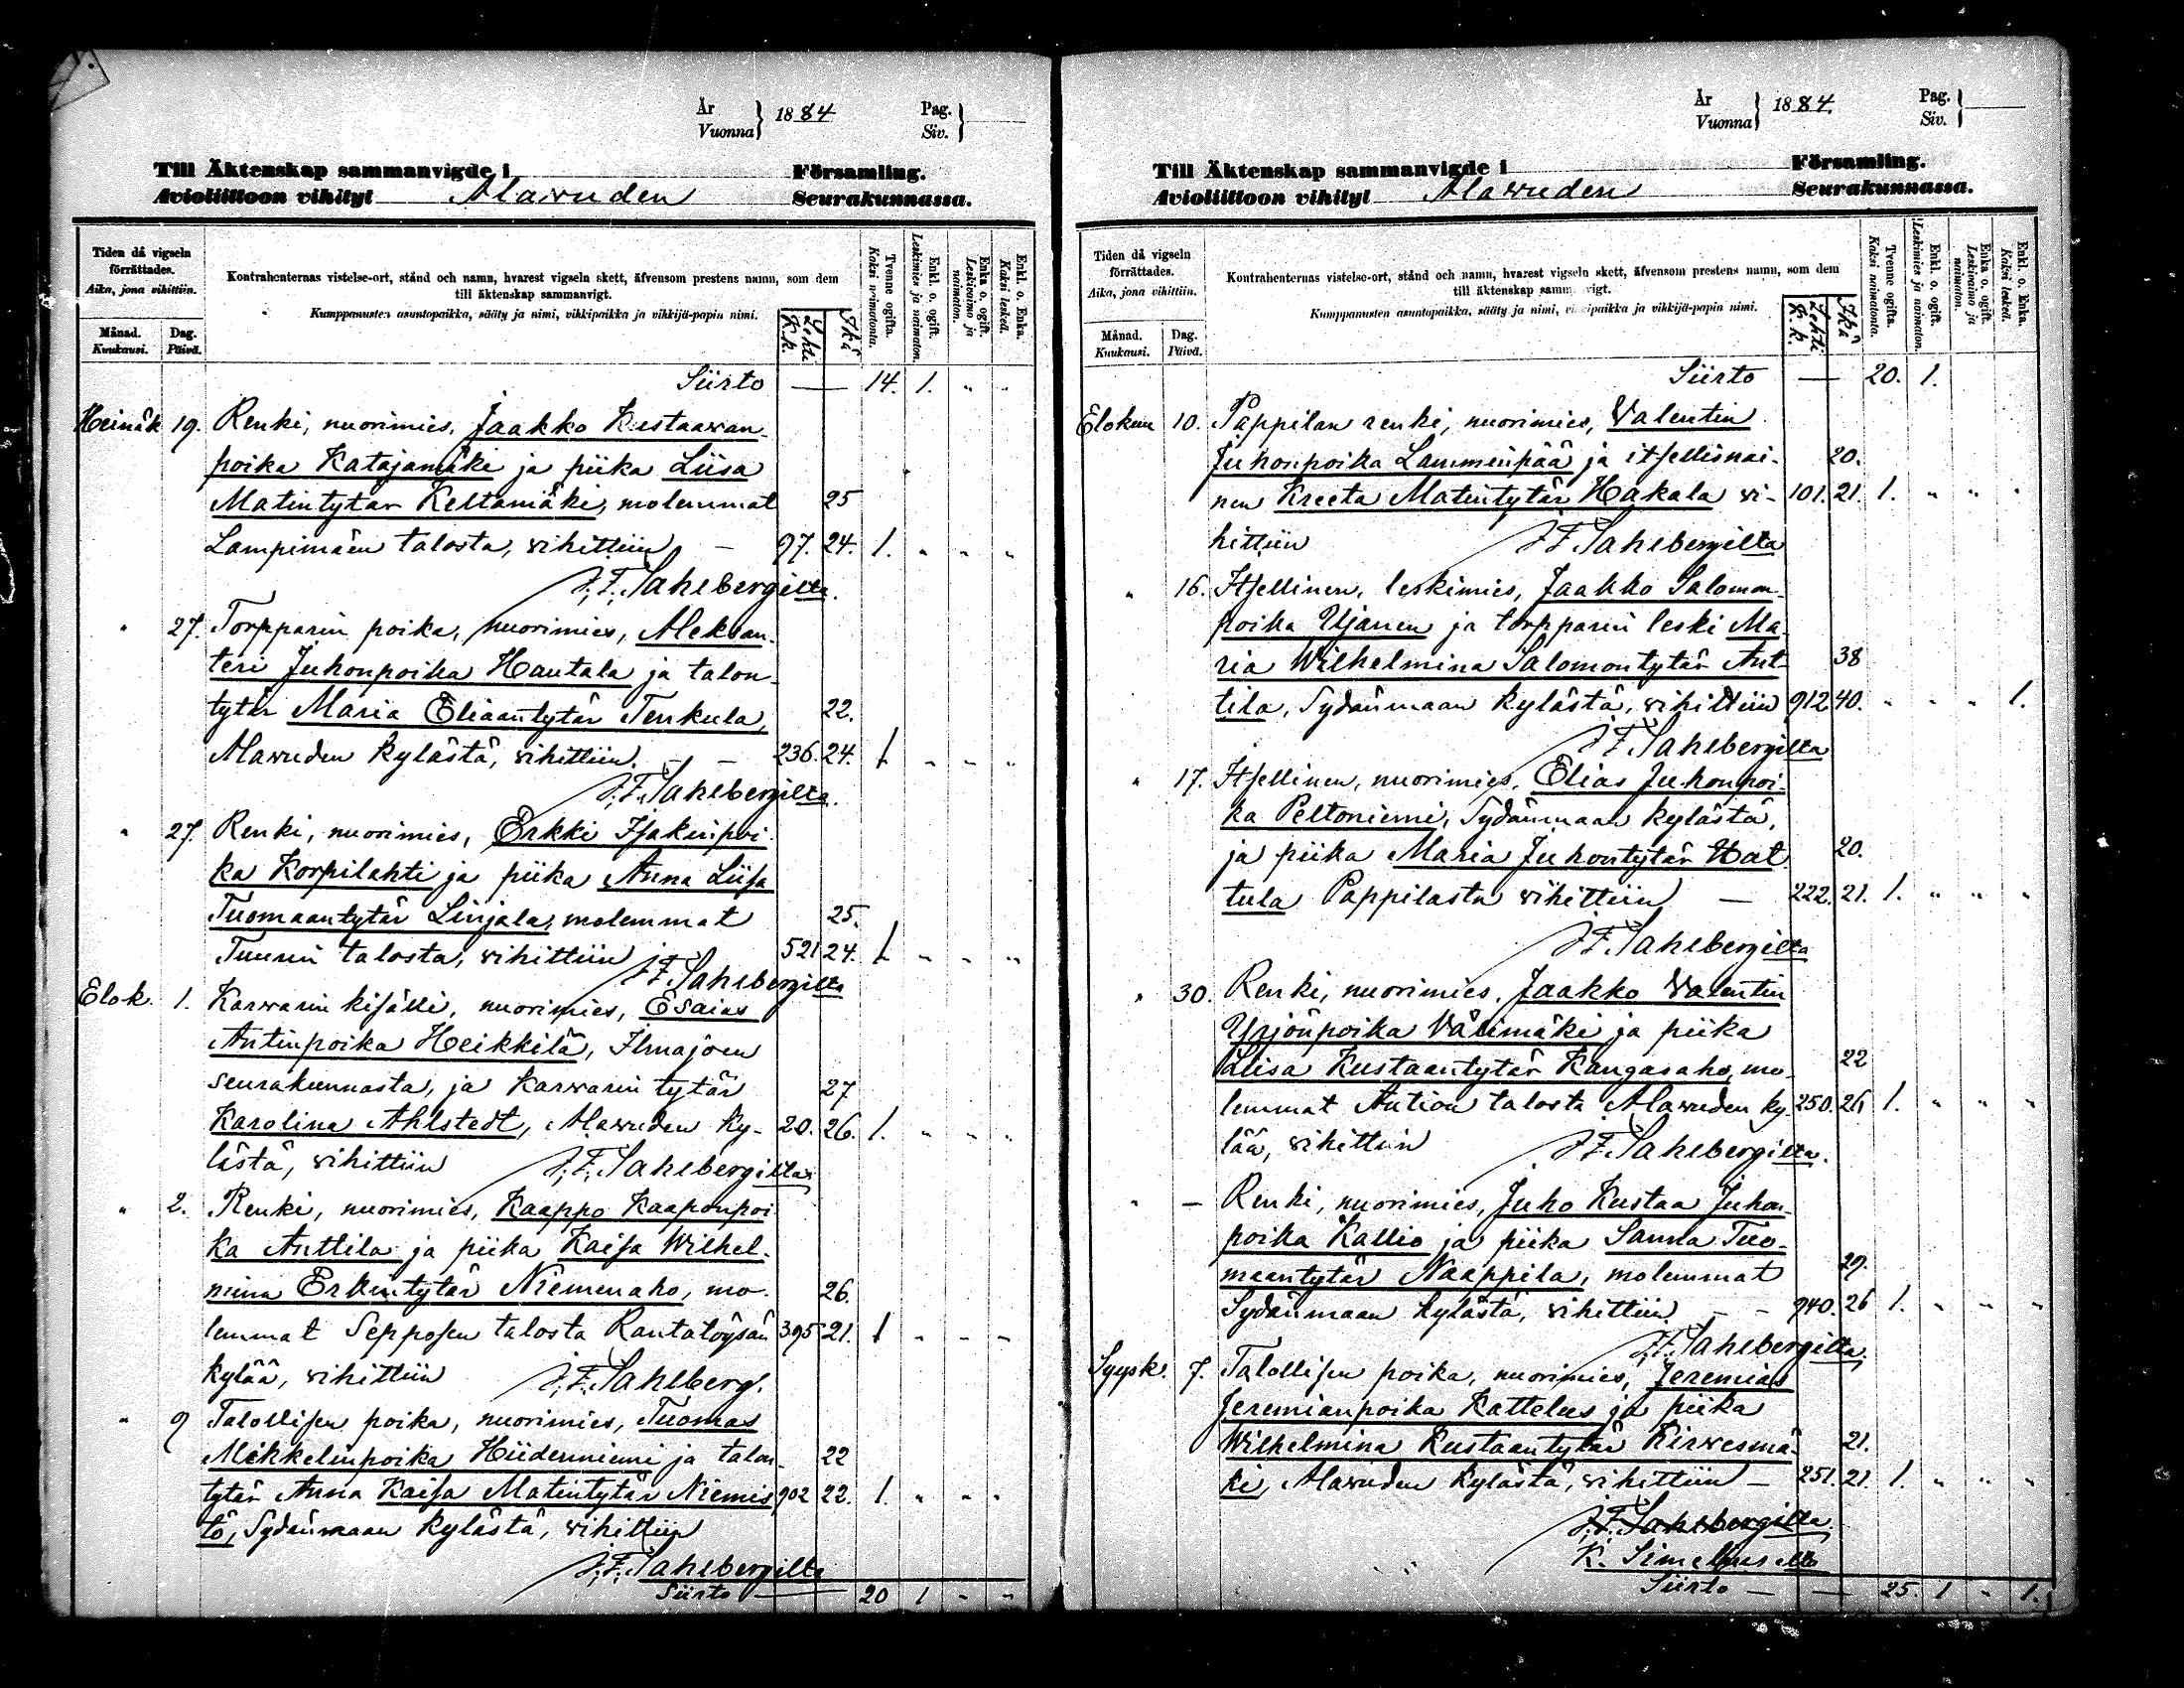 År
Vuonna } 1884
Pag.
Siv. }
Till Äktenskap sammanvigde i Församling.
Avioliittoon vihityt Alawuden Seurakunnassa.
Tiden då vigseln förrättades.
Aika, jona vihittiin.
Månad. Kuukausi.
Dag. Päivä.
Kontrahenternas vistelse-ort, stånd och namn, hvarest vigseln skett, äfvensom prestens namn, som dem
till äktenskap sammanvigt.
Kumppanusten asuntopaikka, sääty ja nimi, vihkipaikka ja vihkijä-papin nimi.
Lehti K.k.
Ikä
Tvenne ogifta. Kaksi naimatonta.
Enkl. o. ogift. Leskimies ja naimaton.
Enka o. ogift. Leskivaimo ja naimaton.
Enkl. o. Enka. Kaksi leskeä.
Siirto — 14. 1. „ „
Heinäk 19. Renki, nuorimies, Jaakko Kustaawan-
poika Katajamäki ja piika Liisa
Matintytär Keltamäki, molemmat 25
Lampimäen talosta, vihittiin — 97. 24. 1. „ „ „
J. F. Sahlbergilta.
„ 27. Torpparin poika, nuorimies, Aleksan-
teri Juhonpoika Hautala ja talon-
tytär Maria Eliaantytär Tenkula, 22.
Alawuden kylästä, vihittiin. — — 236. 24. 1 „ „ „
J. F. Sahlbergilta.
„ 27. Renki, nuorimies, Erkki Isakinpoi-
ka Korpilahti ja piika Anna Liisa
Tuomaantytär Linjala, molemmat 25.
Tuurin talosta, vihittiin 521 24. 1 „ „ „
J. F. Sahlbergilta
Elok. 1. Karwarin kisälli, nuorimies, Esaias
Antinpoika Heikkilä, Ilmajoen
seurakunnasta, ja karwarin tytär 27
Karolina Ahlstedt, Alawuden ky- 20. 26. 1. „ „ „
lästä, vihittiin J. F. Sahlbergilta.
„ 2. Renki, nuorimies, Kaappo Kaaponpoi
ka Anttila ja piika Kaisa Wilhel-
mina Erkintytär Niemenaho, mo- 26.
lemmat Sepposen talosta Rantatöysän 395 21. 1 „ „ „
kylää, vihittiin J. F. Sahlberg.
„ 9 Talollisen poika, nuorimies, Tuomas
Mikkelinpoika Hiidenniemi ja talon- 22
tytär Anna Kaisa Matintytär Niemis 902 22. 1. „ „ „
tö, Sydänmaan kylästä, vihittiin
J. F. Sahlbergilta
Siirto — 20 1 „ „
År
Vuonna } 1884.
Pag.
Siv. }
Till Äktenskap sammanvigde i Församling.
Avioliittoon vihityt Alawuden Seurakunnassa.
Tiden då vigseln förrättades.
Aika, jona vihittiin.
Månad. Kuukausi.
Dag. Päivä.
Kontrahenternas vistelse-ort, stånd och namn, hvarest vigseln skett, äfvensom prestens namn, som dem
till äktenskap samm vigt.
Kumppanusten asuntopaikka, sääty ja nimi, vi ipaikka ja vihkijä-papin nimi.
Lehti K.k.
Ikä
Tvenne ogifta. Kaksi naimatonta.
Enkl. o. ogift. Leskimies ja naimaton.
Enka o. ogift. Leskivaimo ja naimaton.
Enkl. o. Enka. Kaksi leskeä.
Siirto — 20. 1.
Elokuu 10. Pappilan renki, nuorimies, Valentin
Juhonpoika Lamminpää ja itsellisnai- 20.
nen Kreeta Matintytär Hakala vi- 101. 21. 1. „ „ „
hittiin J. F. Sahlbergilta
„ 16. Itsellinen, leskimies, Jaakko Salomon-
poika Ujanen ja torpparin leski Ma-
ria Wilhelmina Salomontytär Ant- 38
tila, Sydänmaan kylästä, vihittiin 912 40. „ „ „ 1.
J. F. Sahlbergilta
„ 17. Itsellinen, nuorimies, Elias Juhonpoi-
ka Peltoniemi, Sydänmaan kylästä,
ja piika Maria Juhontytär Hat 20.
tula Pappilasta vihittiin — 222. 21. 1. „ „ „
J. F. Sahlbergilta
„ 30. Renki, nuorimies, Jaakko Valentin
Yrjönpoika Välimäki ja piika
Liisa Kustaantytär Kangasaho, mo- 22
lemmat Aution talosta Alawuden ky- 250. 26 1. „ „ „
lää, vihittiin J. F. Sahlbergilta.
„ — Renki, nuorimies, Juho Kustaa Juhon-
poika Kallio ja piika Sanna Tuo-
maantytär Naappila, molemmat 29.
Sydänmaan kylästä, vihittiin — — 940. 26 1. „ „ „
J. F. Sahlbergilta
Syysk. 7. Talollisen poika, nuorimies, Jeremias
Jeremianpoika Kattelus ja piika
Wilhelmina Kustaantytär Kirwesmä- 21.
ki, Alawuden kylästä, vihittiin — 251. 21. 1. „ „ „
J. F. Sahlbergilta.
K. Simeliukselta
Siirto — — 25. 1 „ 1.